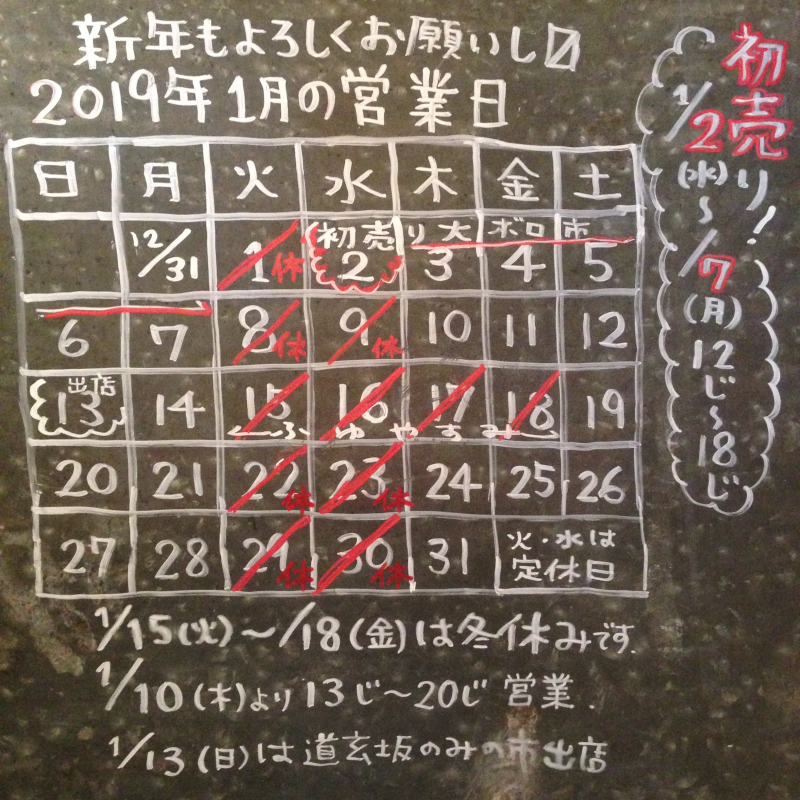 新年もよろしくお願いし〼
2019年1月の営業日
日 月 火 水 木 金 土
初売り大ボロ市
12/31 1休 2 3 4 5
6 7 8休 9休 10 11 12
出店
13 14 15 16 17 18 19
ふゆやすみ
20 21 22休 23休 24 25 26
27 28 29休 30休 31 火・水は
定休日
1/15(火)〜1/18(金)は冬休みです.
1/10(木)より13じ〜20じ営業.
1/13(日)は道玄坂のみの市出店
初売り!
1/2(水)〜1/7(月)12じ〜18じ